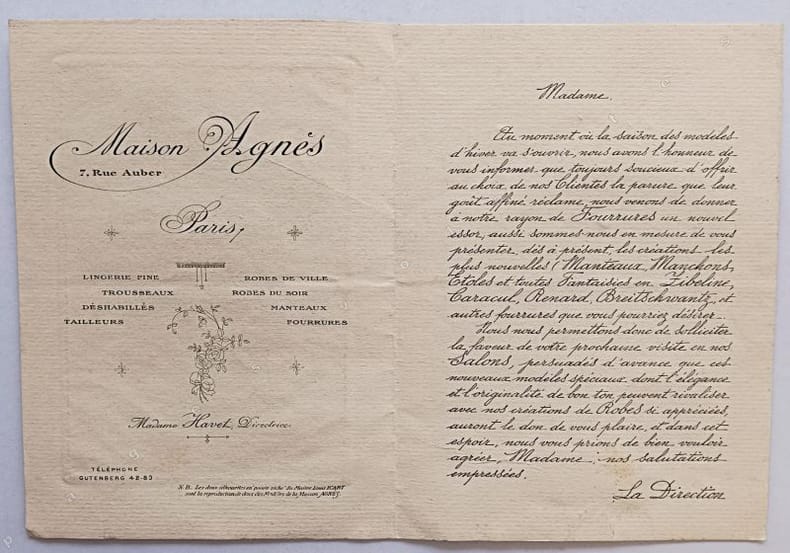 Maison Agnès
7, Rue Auber
Paris,
LINGERIE FINE
TROUSSEAUX
DÉSHABILLÉS
TAILLEURS
ROBES DE VILLE
ROBES DU SOIR
MANTEAUX
FOURRURES
Madame Havet, Directrice
TÉLÉPHONE
GUTENBERG 42-83
N.B. Les deux silhouettes en pointe sèche du Maître Louis ICART
sont la reproduction de deux des Modèles de la Maison AGNÈS.
Madame,
Au moment où la saison des modèles
d'hiver va s'ouvrir, nous avons l'honneur de
vous informer que toujours soucieux d'offrir
au choix de nos Clientes la parure que leur
goût affiné réclame, nous venons de donner
à notre rayon de Fourrures un nouvel
essor, aussi sommes-nous en mesure de vous
présenter, dès à présent, les créations les
plus nouvelles (Manteaux, Manchons,
Etoles et toutes Fantaisies en Zibeline,
Caracul, Renard, Breitschwantz, et
autres fourrures que vous pourriez désirer.
Nous nous permettons donc de solliciter
la faveur de votre prochaine visite en nos
Salons, persuadés d'avance que ces
nouveaux modèles spéciaux dont l'élégance
et l'originalité de bon ton peuvent rivaliser
avec nos créations de Robes si appréciées,
auront le don de vous plaire, et dans cet
espoir, nous vous prions de bien vouloir
agréer, Madame, nos salutations
empressées.
La Direction